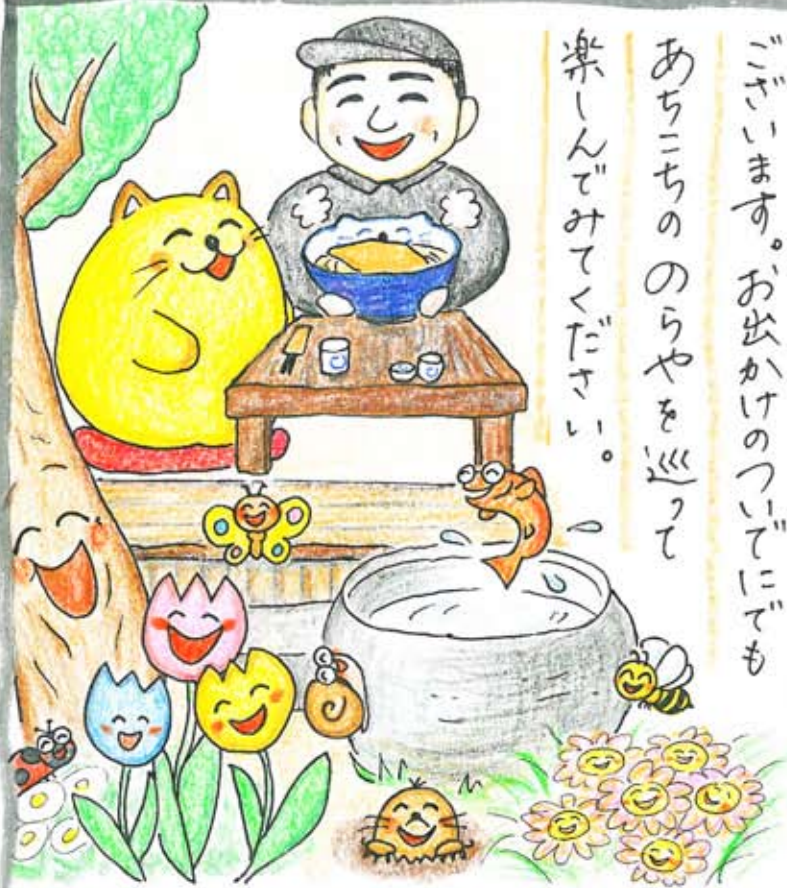 ございます。お出かけのついでにでも
あちこちの のらやを巡って
楽しんでみてください。